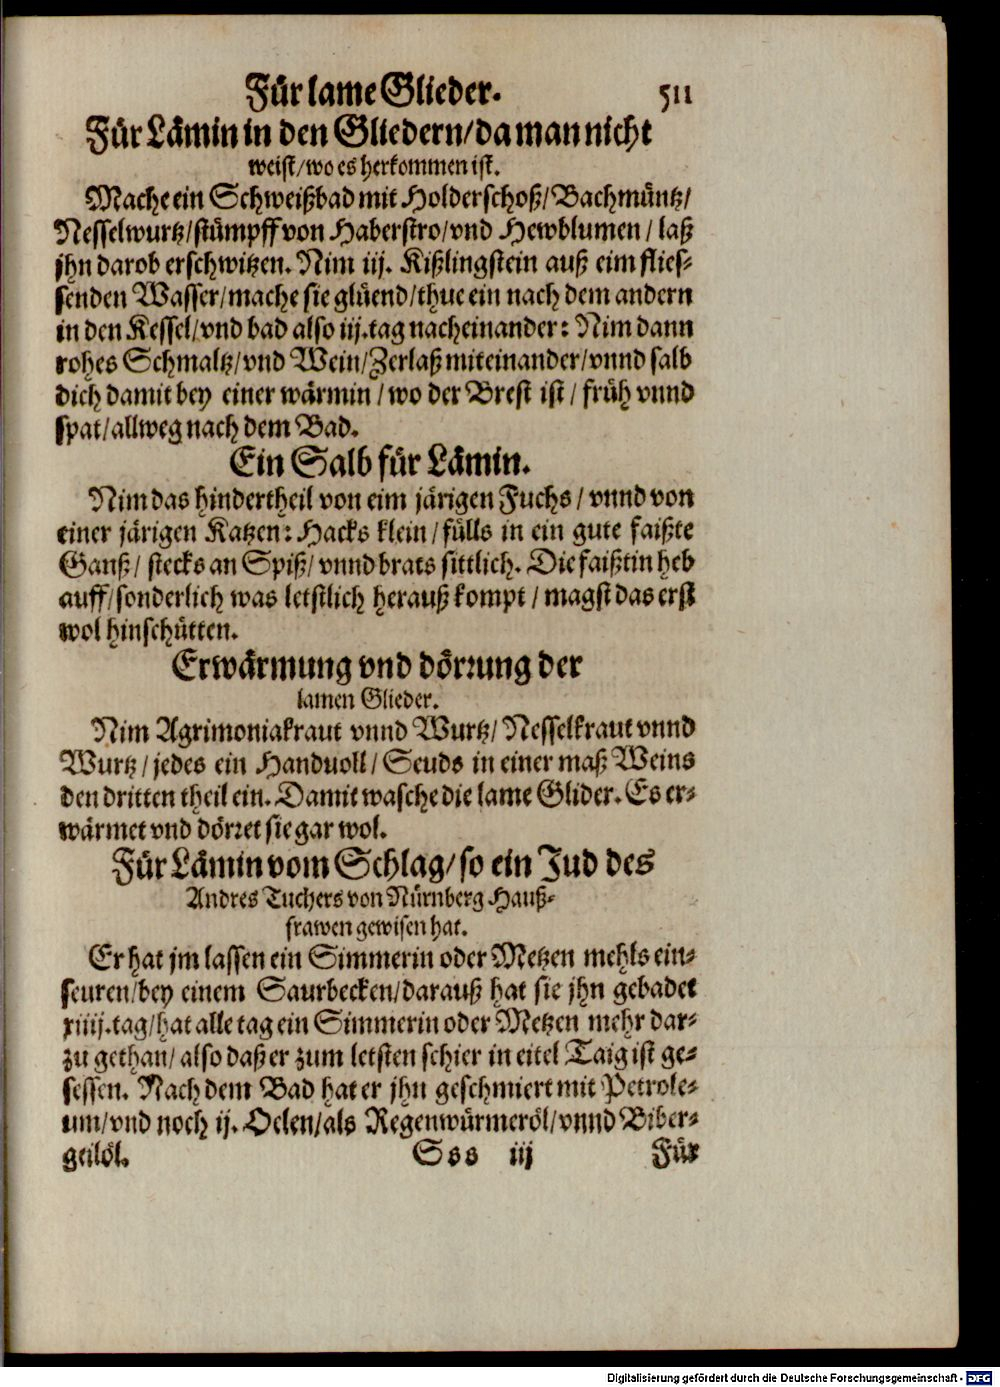 Für lame Glieder. 511
Für Lämin in den Gliedern/ da man nicht
weist/ wo es herkommen ist.
Mache ein Schweißbad mit Holderschoß/ Bachmüntz/
Nesselwurtz/ stümpff von Haberstro/ vnd Hewblumen/ laß
jhn darob erschwitzen. Nim iij. Kißlingstein auß eim flies-
senden Wasser/ mache sie glüend/ thue ein nach dem andern
in den Kessel/ vnd bad also iij. tag nacheinander: Nim dann
rohes Schmaltz/ vnd Wein/ Zerlaß miteinander/ vnnd salb
dich damit bey einer wärmin/ wo der Brest ist/ früh vnnd
spat/ allweg nach dem Bad.
Ein Salb für Lämin.
Nim das hindertheil von eim järigen Fuchs/ vnnd von
einer järigen Katzen: Hacks klein/ fülls in ein gute faißte
Ganß/ stecks an Spiß/ vnnd brats sittlich. Die faißtin heb
auff/ sonderlich was letstlich herauß kompt/ magst das erst
wol hinschütten.
Erwärmung vnd dörrung der
lamen Glieder.
Nim Agrimoniakraut vnnd Wurtz/ Nesselkraut vnnd
Wurtz/ jedes ein Handuoll/ Seuds in einer maß Weins
den dritten theil ein. Damit wasche die lame Glider. Es er-
wärmet vnd dörret sie gar wol.
Für Lämin vom Schlag/ so ein Jud des
Andres Tuchers von Nürnberg Hauß-
frawen gewisen hat.
Er hat jm lassen ein Simmerin oder Metzen mehls ein-
seuren/ bey einem Saurbecken/ darauß hat sie jhn gebadet
xiiij. tag/ hat alle tag ein Simmerin oder Metzen mehr dar-
zu gethan/ also daß er zum letsten schier in eitel Taig ist ge-
sessen. Nach dem Bad hat er jhn geschmiert mit Petrole-
um/ vnd noch ij. Oelen/ als Regenwürmeröl/ vnnd Biber-
geilöl.
Sss iij Für
Digitalisierung gefördert durch die Deutsche Forschungsgemeinschaft - DFG